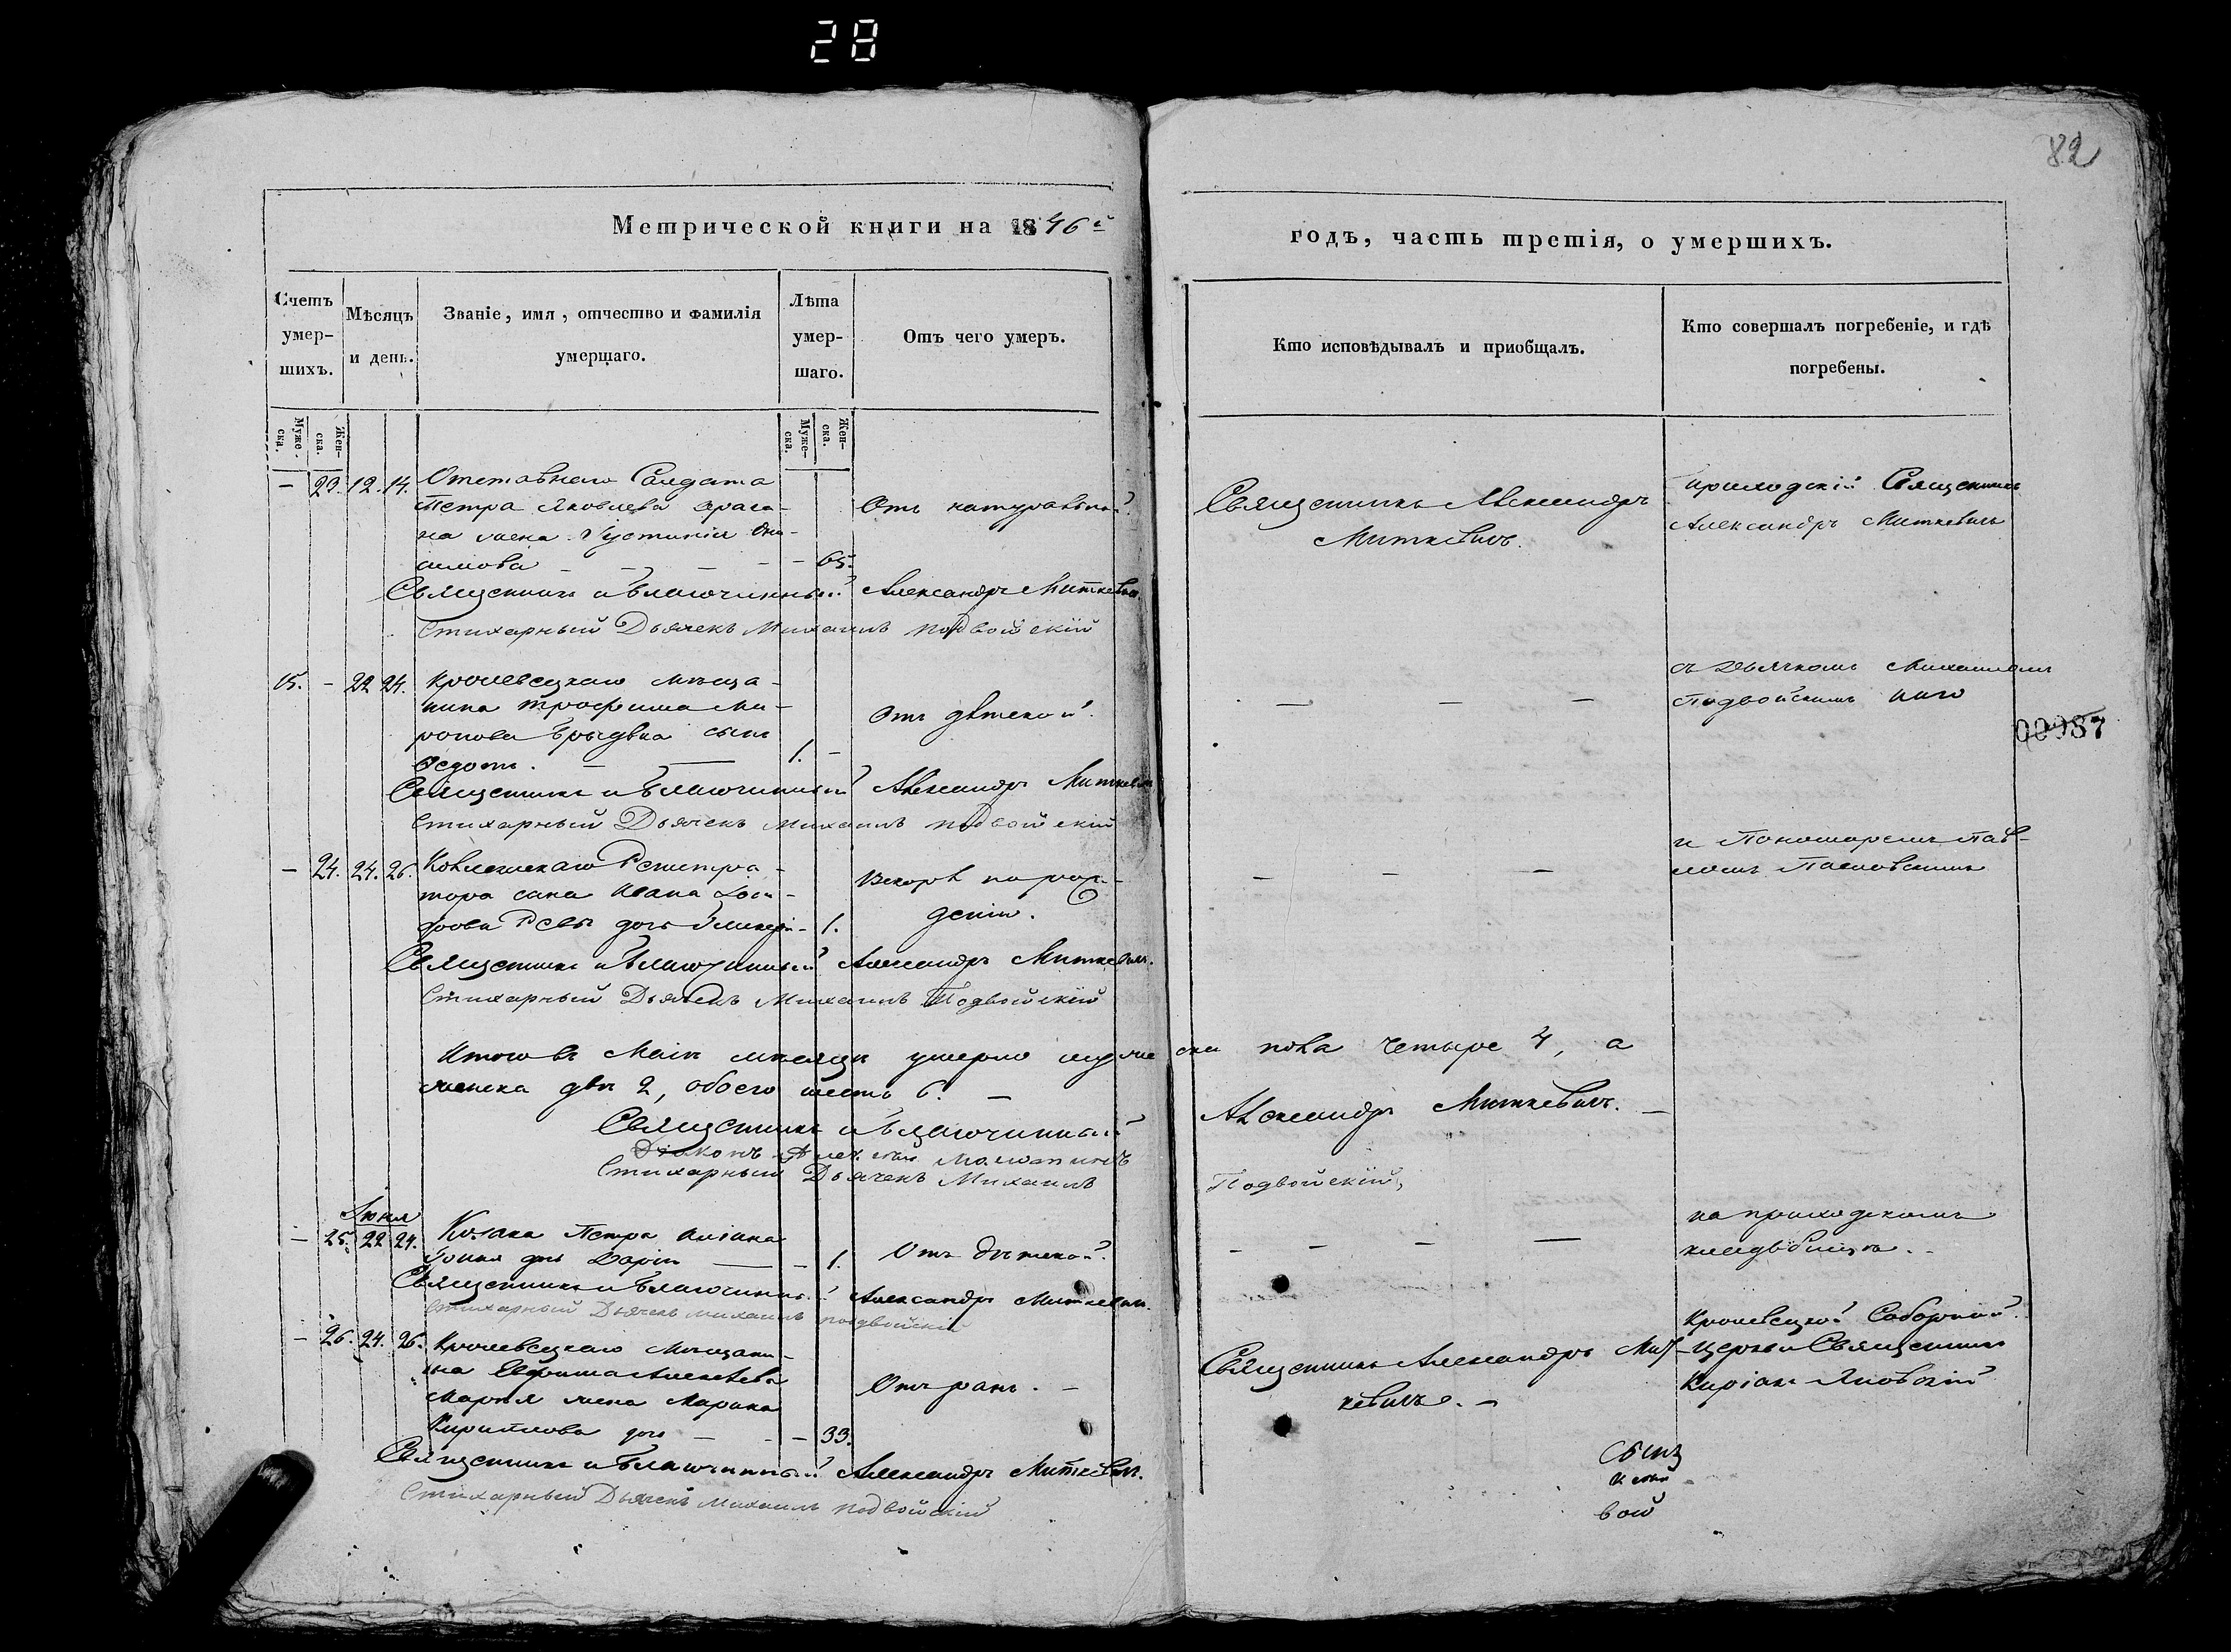 28
82
Метрической книги на 1846й
годъ, часть третія, о умершихъ.
Счетъ умершихъ.
Мѣсяцъ и день.
Званіе, имя, отчество и фамилія умершаго.
Лѣта умершаго.
Отъ чего умеръ.
Кто исповѣдывалъ и приобщалъ.
Кто совершалъ погребеніе, и гдѣ погребены.
Муже-ска.
Жен-ска.
Муже-ска.
Жен-ска.
— 23. 12. 14. Отставнаго Солдата
Петра Яковлева
на жена Іустинія
65.
Отъ натуральной
Священникъ Александръ
Миткевичъ.
приходскій Священникъ
Александръ Миткевичъ
Священникъ и Благочинный Александръ Миткевичъ.
Стихарный Дьячекъ Михаилъ Подвойскій
15. — 22 24. Кролевецкаго мѣща-
нина Трофима Ми-
ронова сынъ
Федотъ. — — 1. —
Отъ дѣтской.
— — —
съ Дьячкомъ Михаиломъ
Подвойскимъ
00987
Священникъ и Благочинный Александръ Миткевичъ
Стихарный Дьячекъ Михаилъ Подвойскій
— 24. 24. 26. Коллежскаго Регистра-
тора Ивана
дочь 1.
Вскорѣ по рож-
деніи.
— — —
и Пономаремъ Пав-
ломъ
Священникъ и Благочинный Александръ Миткевичъ.
Стихарный Дьячекъ Михаилъ Подвойскій
Итого въ Маіѣ мѣсяцѣ умерло муже ска пола четыре 4, а
женска двѣ 2, обоего шесть 6. —
Священникъ и Благочинный Александръ Миткевичъ. —
Стихарный Дьячекъ Михаилъ Подвойскій,
Іюня
— 25. 22 24. Козака Петра
дочь Дарія — — 1.
Отъ дѣтской.
— — — —
на приходскомъ
кладбищѣ. —
Священникъ и Благочинный Александръ Миткевичъ.
Стихарный Дьячекъ Михаилъ Подвойскій
— 26. 24. 26. Кролевецкаго Мѣщани-
на Ефима Алексѣева
жена Марина
Кирилова дочь — — 33.
Отъ ранъ. —
Священникъ Александръ Мит-
кевичъ. —
Кролевецкой Соборной
Церкви Священникъ
Киріакъ
Священникъ и Благочинный Александръ Миткевичъ.
Стихарный Дьячекъ Михаилъ Подвойскій
вой